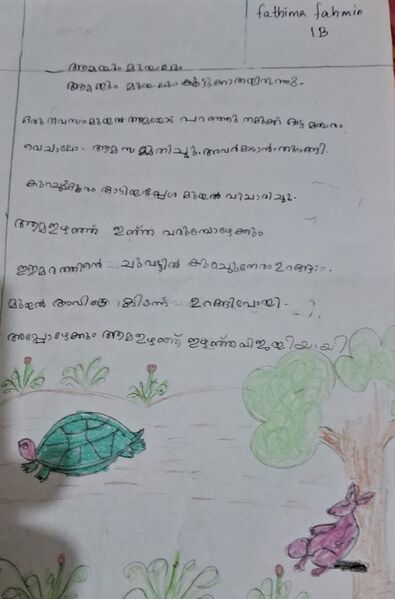 fathima fahmin
1B
ആമയും മുയലും
ആമയും മുയലും കൂട്ടുകാരായിരുന്നു.
ഒരു ദിവസം മുയൽ ആമയോട് പറഞ്ഞു നമുക്ക് ഓട്ട മത്സരം
വെച്ചാലോ. ആമ സമ്മതിച്ചു. അവർ ഓടാൻ തുടങ്ങി.
കുറച്ചുദൂരം ഓടിയപ്പോൾ മുയൽ വിചാരിച്ചു.
ആമ ഇഴഞ്ഞ് ഇഴഞ്ഞ് വരുമ്പോഴേക്കും
ഈ മരത്തിന്റെ ചുവട്ടിൽ കുറച്ചുനേരം ഉറങ്ങാം.
മുയൽ അവിടെ കിടന്ന് ഉറങ്ങിപോയി.
അപ്പോഴേക്കും ആമ ഇഴഞ്ഞ് ഇഴഞ്ഞ് വിജയിയായി